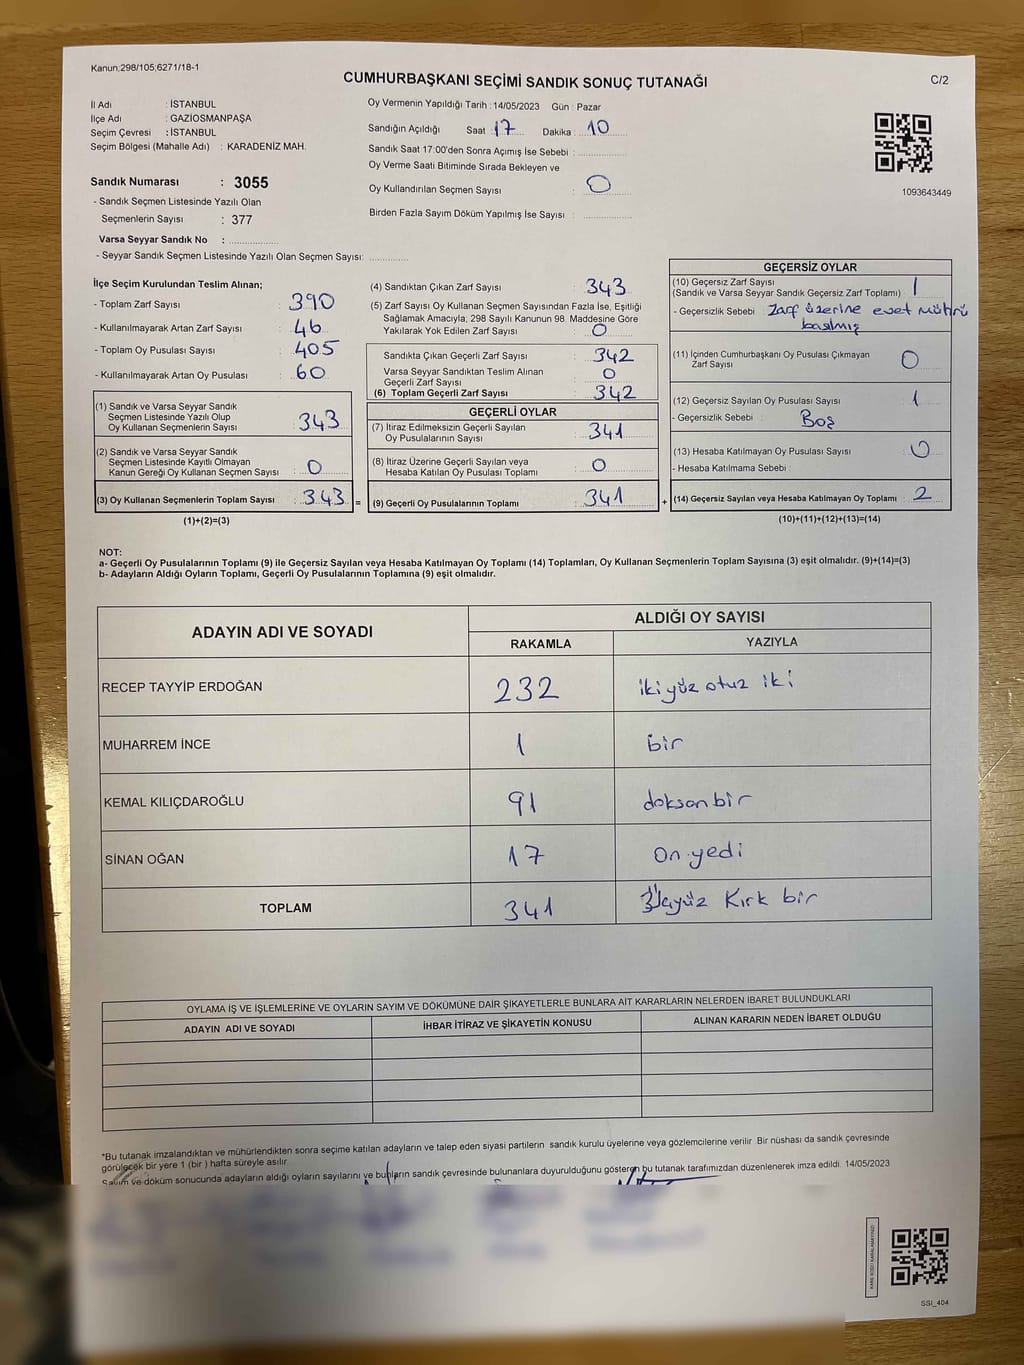 Kanun;298/105,6271/18-1
CUMHURBAŞKANI SEÇİMİ SANDIK SONUÇ TUTANAĞI
C/2
İl Adı : İSTANBUL
İlçe Adı : GAZİOSMANPAŞA
Seçim Çevresi : İSTANBUL
Seçim Bölgesi (Mahalle Adı) : KARADENİZ MAH.
Sandık Numarası : 3055
- Sandık Seçmen Listesinde Yazılı Olan
Seçmenlerin Sayısı : 377
Varsa Seyyar Sandık No :
- Seyyar Sandık Seçmen Listesinde Yazılı Olan Seçmen Sayısı:
Oy Vermenin Yapıldığı Tarih : 14/05/2023 Gün : Pazar
Sandığın Açıldığı Saat : 17 Dakika : 10
Sandık Saat 17:00'den Sonra Açımış İse Sebebi :
Oy Verme Saati Bitiminde Sırada Bekleyen ve
Oy Kullandırılan Seçmen Sayısı : 0
Birden Fazla Sayım Döküm Yapılmış İse Sayısı :
1093643449
İlçe Seçim Kurulundan Teslim Alınan;
- Toplam Zarf Sayısı : 390
- Kullanılmayarak Artan Zarf Sayısı : 46
- Toplam Oy Pusulası Sayısı : 405
- Kullanılmayarak Artan Oy Pusulası : 60
(1) Sandık ve Varsa Seyyar Sandık
Seçmen Listesinde Yazılı Olup
Oy Kullanan Seçmenlerin Sayısı : 343
(2) Sandık ve Varsa Seyyar Sandık
Seçmen Listesinde Kayıtlı Olmayan
Kanun Gereği Oy Kullanan Seçmen Sayısı : 0
(3) Oy Kullanan Seçmenlerin Toplam Sayısı : 343 =
(1)+(2)=(3)
(4) Sandıktan Çıkan Zarf Sayısı : 343
(5) Zarf Sayısı Oy Kullanan Seçmen Sayısından Fazla İse, Eşitliği
Sağlamak Amacıyla, 298 Sayılı Kanunun 98. Maddesine Göre
Yakılarak Yok Edilen Zarf Sayısı : 0
Sandıkta Çıkan Geçerli Zarf Sayısı : 342
Varsa Seyyar Sandıktan Teslim Alınan
Geçerli Zarf Sayısı : 0
(6) Toplam Geçerli Zarf Sayısı : 342
GEÇERLİ OYLAR
(7) İtiraz Edilmeksizin Geçerli Sayılan
Oy Pusulalarının Sayısı : 341
(8) İtiraz Üzerine Geçerli Sayılan veya
Hesaba Katılan Oy Pusulası Toplamı : 0
(9) Geçerli Oy Pusulalarının Toplamı : 341 +
GEÇERSİZ OYLAR
(10) Geçersiz Zarf Sayısı : 1
(Sandık ve Varsa Seyyar Sandık Geçersiz Zarf Toplamı)
- Geçersizlik Sebebi : Zarf üzerine evet mührü
basılmış
(11) İçinden Cumhurbaşkanı Oy Pusulası Çıkmayan
Zarf Sayısı : 0
(12) Geçersiz Sayılan Oy Pusulası Sayısı : 1
- Geçersizlik Sebebi : Boş
(13) Hesaba Katılmayan Oy Sayısı : 0
- Hesaba Katılmama Sebebi :
(14) Geçersiz Sayılan veya Hesaba Katılmayan Oy Toplamı : 2
(10)+(11)+(12)+(13)=(14)
NOT:
a- Geçerli Oy Pusulalarının Toplamı (9) ile Geçersiz Sayılan veya Hesaba Katılmayan Oy Toplamı (14) Toplamları, Oy Kullanan Seçmenlerin Toplam Sayısına (3) eşit olmalıdır. (9)+(14)=(3)
b- Adayların Aldığı Oyların Toplamı, Geçerli Oy Pusulalarının Toplamına (9) eşit olmalıdır.
ADAYIN ADI VE SOYADI
ALDIĞI OY SAYISI
RAKAMLA YAZIYLA
RECEP TAYYİP ERDOĞAN 232 iki yüz otuz iki
MUHARREM İNCE 1 bir
KEMAL KILIÇDAROĞLU 91 doksan bir
SİNAN OĞAN 17 On yedi
TOPLAM 341 Üçyüz Kırk bir
OYLAMA İŞ VE İŞLEMLERİNE VE OYLARIN SAYIM VE DÖKÜMÜNE DAİR ŞİKAYETLERLE BUNLARA AİT KARARLARIN NELERDEN İBARET BULUNDUKLARI
ADAYIN ADI VE SOYADI İHBAR İTİRAZ VE ŞİKAYETİN KONUSU ALINAN KARARIN NEDEN İBARET OLDUĞU
*Bu tutanak imzalandıktan ve mühürlendikten sonra seçime katılan adayların ve talep eden siyasi partilerin sandık kurulu üyelerine veya gözlemcilerine verilir. Bir nüshası da sandık çevresinde
görülecek bir yere 1 (bir) hafta süreyle asılır.
Sayım ve döküm sonucunda adayların aldığı oyların sayılarını ve bunların sandık çevresinde bulunanlara duyurulduğunu gösteren bu tutanak tarafımızdan düzenlenerek imza edildi. 14/05/2023
SSI_404